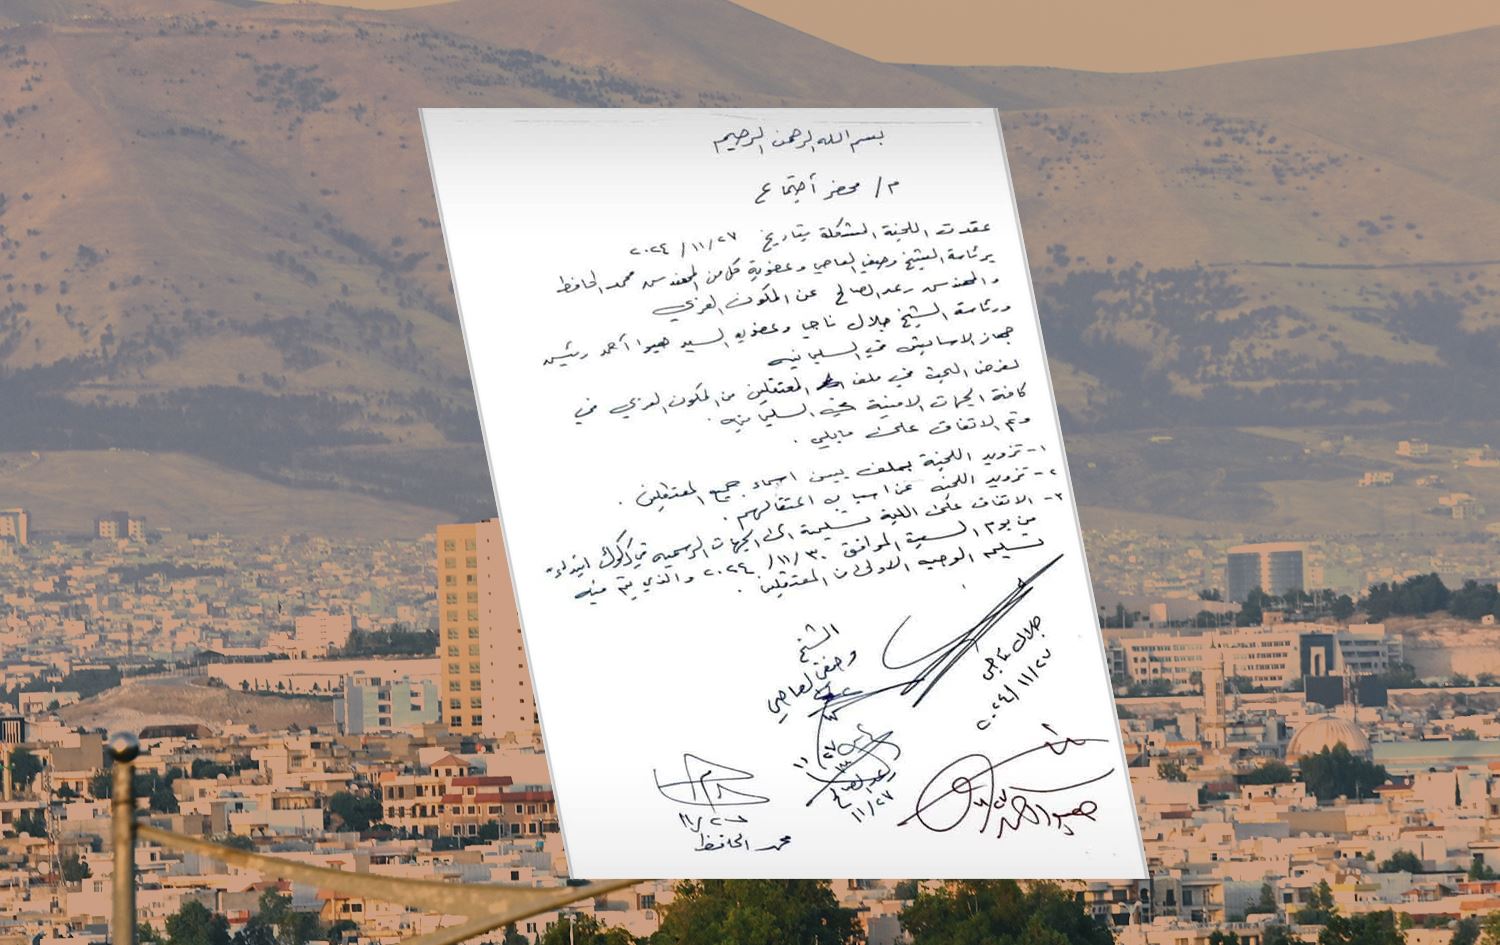 بسم الله الرحمن الرحيم
م/ محضر أجتماع
عقدت اللجنة المشكلة بتاريخ ٢٠٢٤/١١/٢٧
برئاسة الشيخ وصفي العاصي وعضوية كل من المهندس محمد الحافظ
والمهندس رعد الصالح عن المكون العربي
ورئاسة الشيخ جلال ناجي وعضوية السيد هيوا أحمد رئيس
جهاز الاسايش في السليمانيه
لغرض البحث في ملف المعتقلين من المكون العربي في
كافة الجهات الامنية في السليمانيه .
وتم الاتفاق على مايلي .
١- تزويد اللجنة بملف يبين اسماء جميع المعتقلين .
٢- تزويد اللجنه عن اسباب اعتقالهم .
٣- الاتفاق على الية تسليمة الى الجهات الرسميه في كركوك ابتداءً
من يوم السبت الموافق ٢٠٢٤/١١/٣٠ والذي يتم فيه
تسليم الوجبه الاولى من المعتقلين .
الشيخ
وصفي العاصي
١١/٢٧
جلال ناجي
٢٠٢٤/١١/٢٧
رعد الصالح
١١/٢٧
هيوا احمد
١١/٢٧
محمد الحافظ